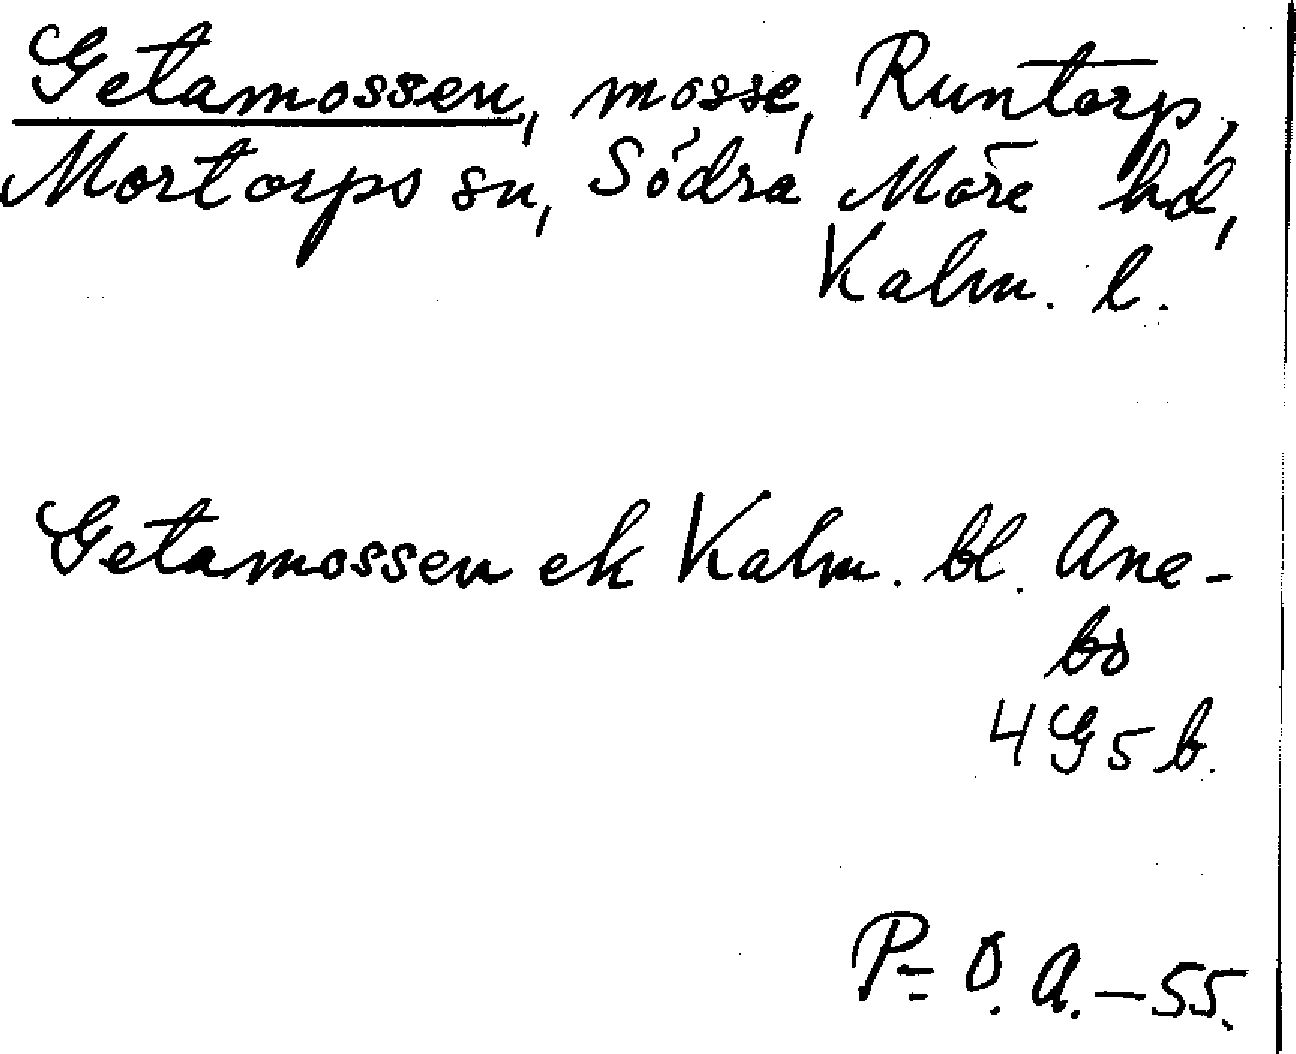 Getamossen, mosse, Runtorp,
Mortorps sn, Södra Möre hd,
Kalm. l.
Getamossen ek Kalm. bl. Ane-
bo
4G5b.
P= O. A. – 55.